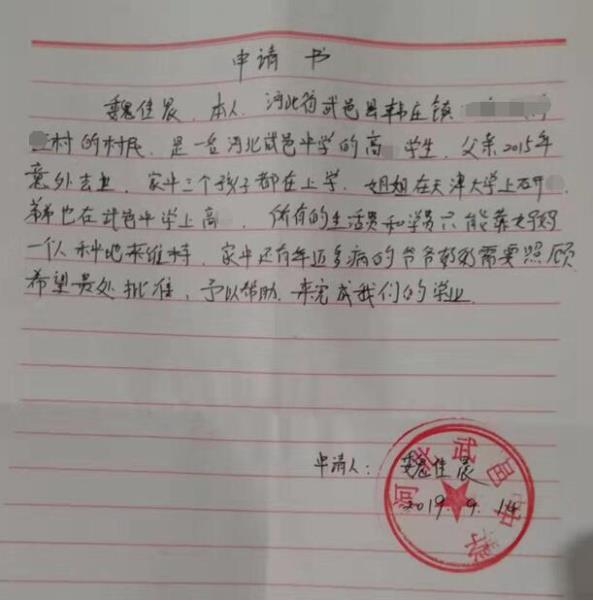 申请书
魏佳晨，本人，河北省武邑县韩庄镇
村的村民，是一名河北武邑中学的高 学生，父亲2015年
意外去世，家中三个孩子都在上学，姐姐在天津大学上研 ，
弟弟也在武邑中学上高 ，所有的生活费和学费只能靠妈妈
一个人种地来维持，家中还有年迈多病的爷爷奶奶需要照顾
希望贵处批准，予以帮助，来完成我们的学业.
申请人：魏佳晨
2019.9.14
河北武邑中学